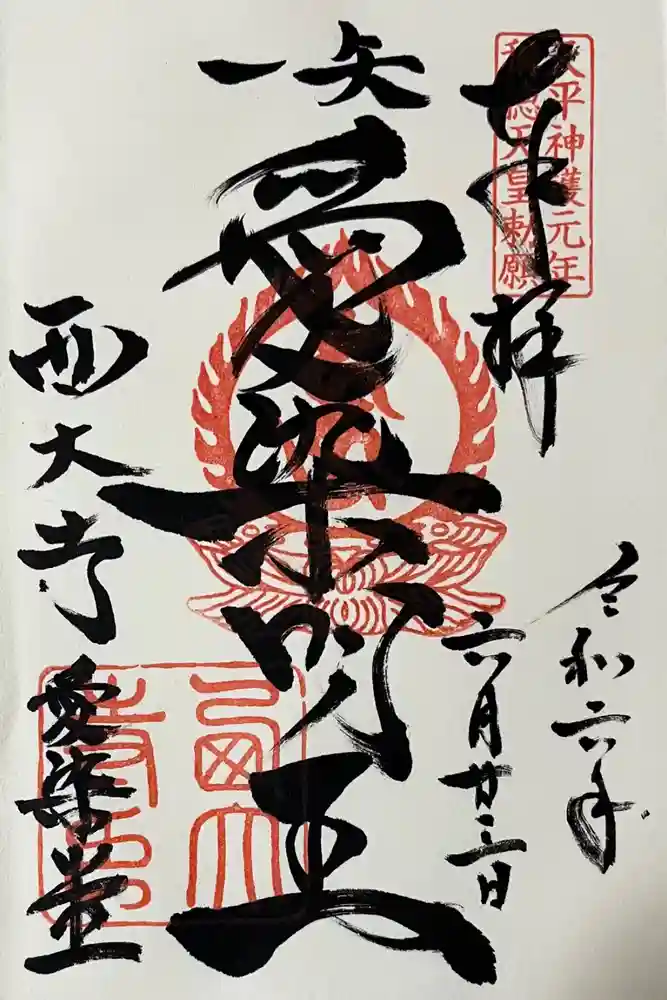 天平神護元年
称徳天皇勅願
奉拝
令和六年
六月廿三日
一矢
愛染明王
西大寺 愛染堂
西大
寺印